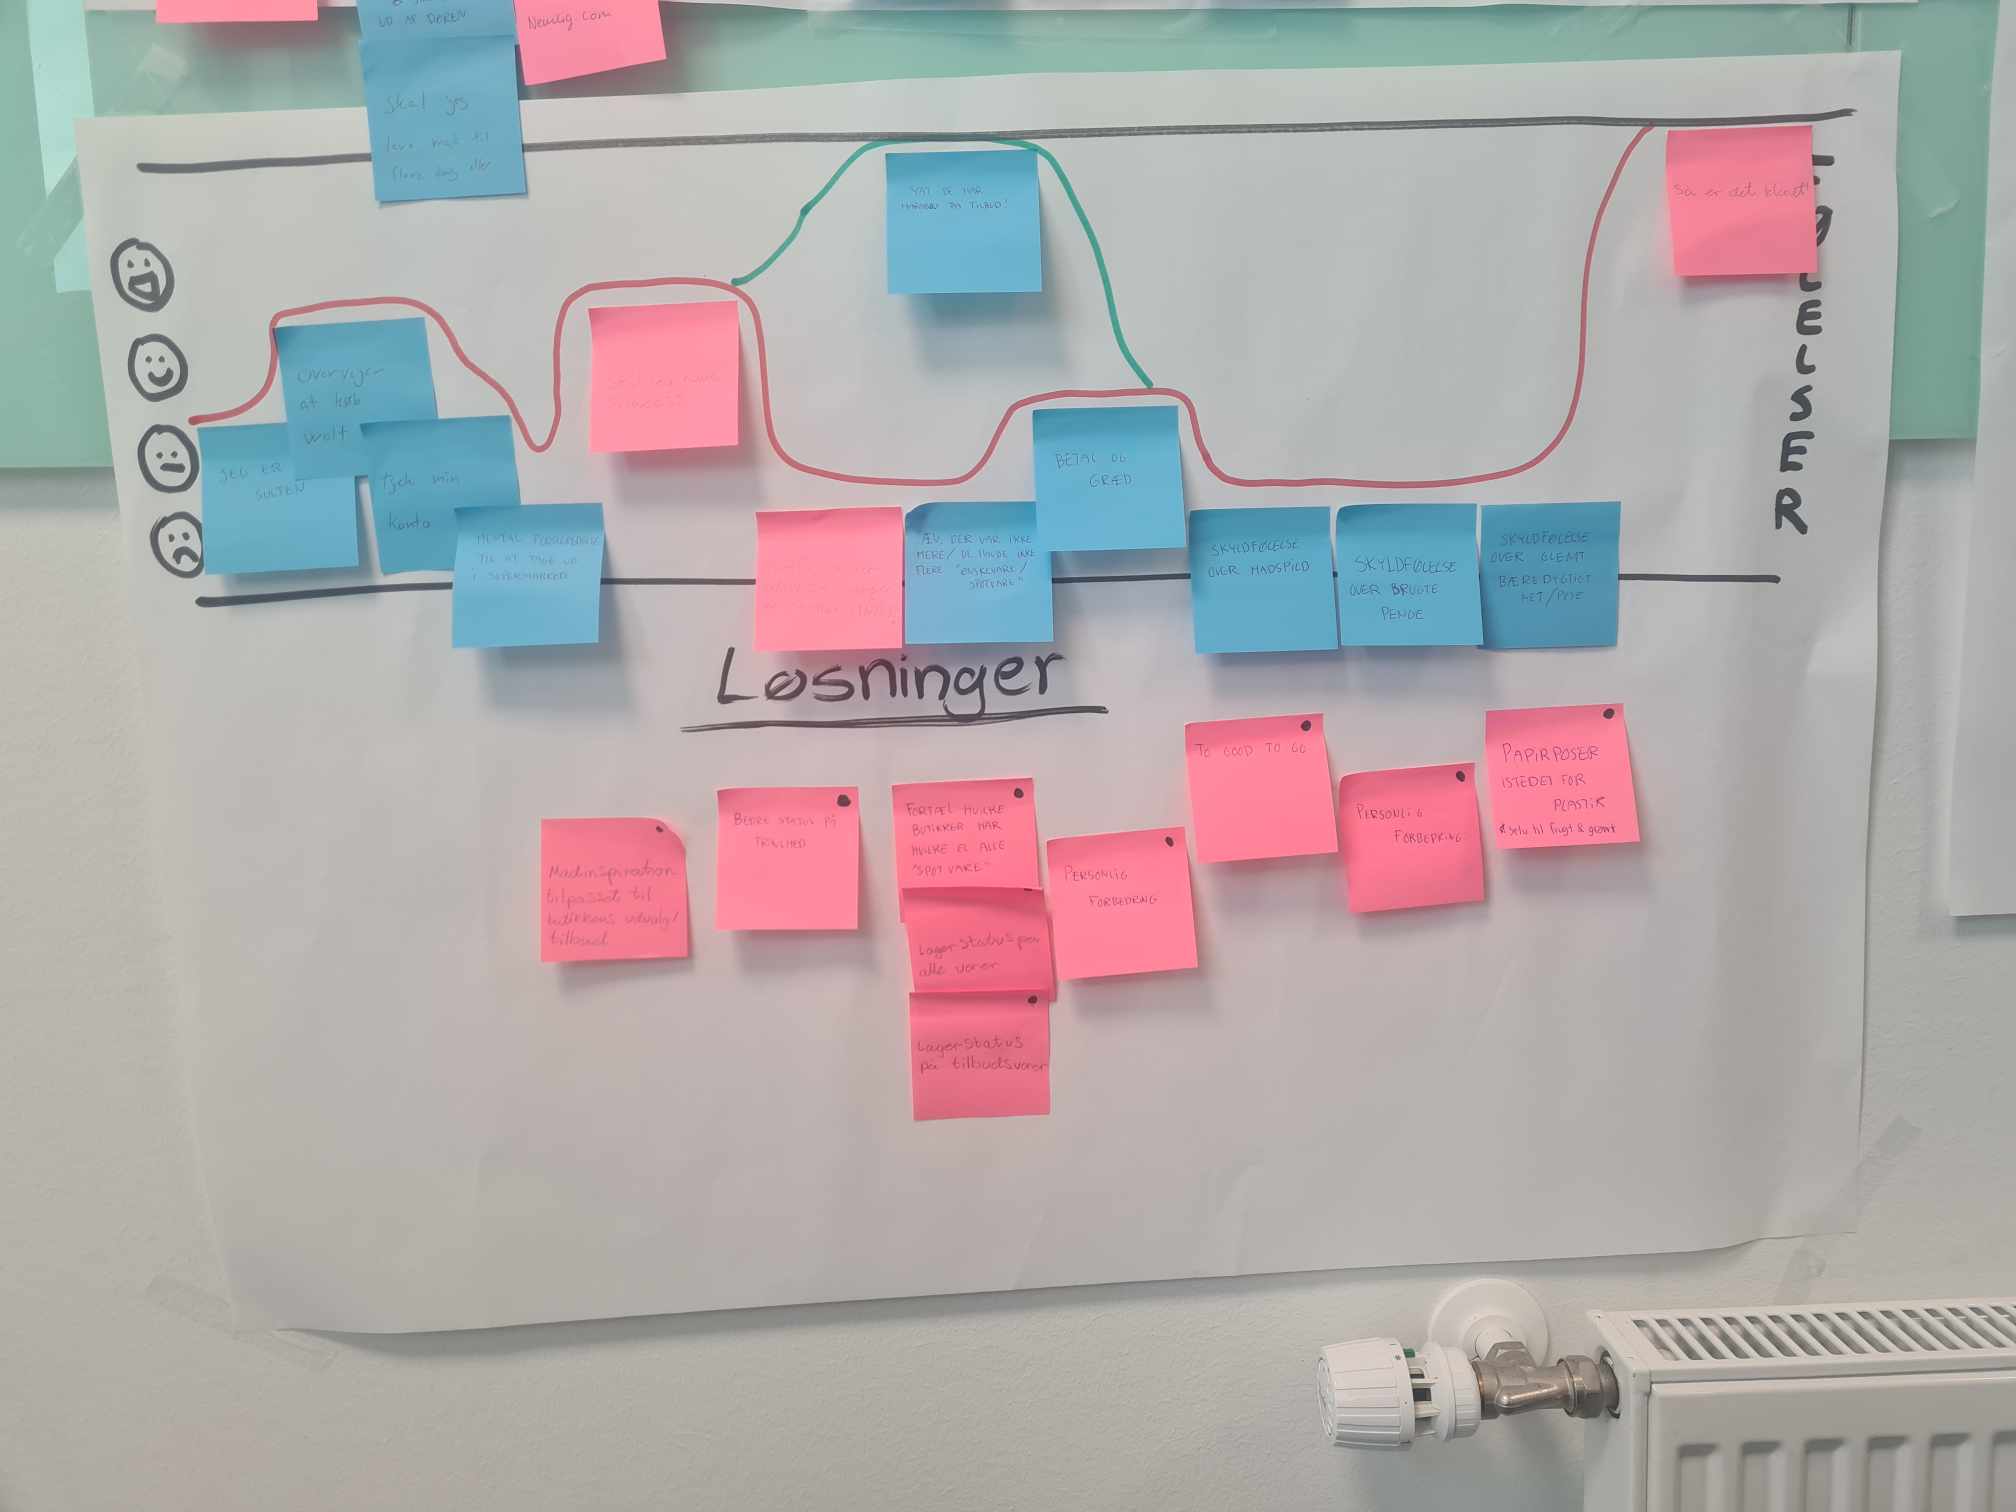 UD AF DØREN
Nemlig.com
Skal jeg
lave mad til
flere dag eller
YAY DE HAR
PÅ TILBUD!
Så er det klart!
FØLELSER
Overvejer
at køb
wolt
JEG ER
SULTEN
Tjek min
konto
MENTAL
TIL AT TAGE UD
I SUPERMARKED
ÆV, DER VAR IKKE
MERE/ DE HAVDE IKKE
FLERE "ØNSKEVARE/
SPOTVARE"
BETAL OG
GRÆD
SKYLDFØLELSE
OVER MADSPILD
SKYLDFØLELSE
OVER BRUGTE
PENGE
SKYLDFØLELSE
OVER GLEMT
BÆREDYGTIGT
NET/POSE
Løsninger
Madinspiration
tilpasset til
butikkens udvalg/
tilbud
BEDRE STATUS PÅ
TRAVLHED
FORTÆL HVILKE
BUTIKKER HAR
HVILKE EL ALLE
"SPOTVARE"
Lagerstatus på
alle varer
Lagerstatus
på tilbudsvarer
PERSONLIG
FORBEDRING
TO GOOD TO GO
PERSONLIG
FORBEDRING
PAPIRPOSER
ISTEDET FOR
PLASTIK
selv til frugt & grønt